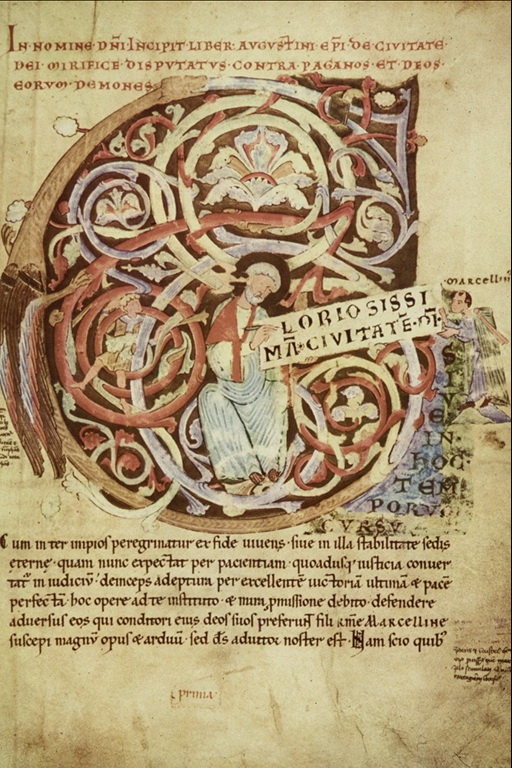 IN·NOMINE·DNI·INCIPIT·LIBER·AVGVSTINI·EPI·DE·CIVITATE·
DEI·MIRIFICE·DISPVTATVS·CONTRA·PAGANOS·ET·DEOS·
EORVM·DEMONES·
MARCELLIN
LORIOSISSI
MA·CIVITATE·DI·
SI
VE
IN
HOC·
TEM
PORV
CVRSV
Cum inter impios peregrinatur ex fide uiuens· siue in illa stabilitate sedis
eterne· quam nunc expectat per pacientiam· quoadusq iusticia conuer
tat in iudiciu· deinceps adeptura per excellentie uictoria ultima & pace
perfecta· hoc opere ad te instituto· & mea pmissione debito· defendere
aduersus eos qui conditori eius deos suos preferunt fili kme Marcelline
suscepi· magnu opus & arduu· sed ds adiutor noster est· Nam scio quib
prima·